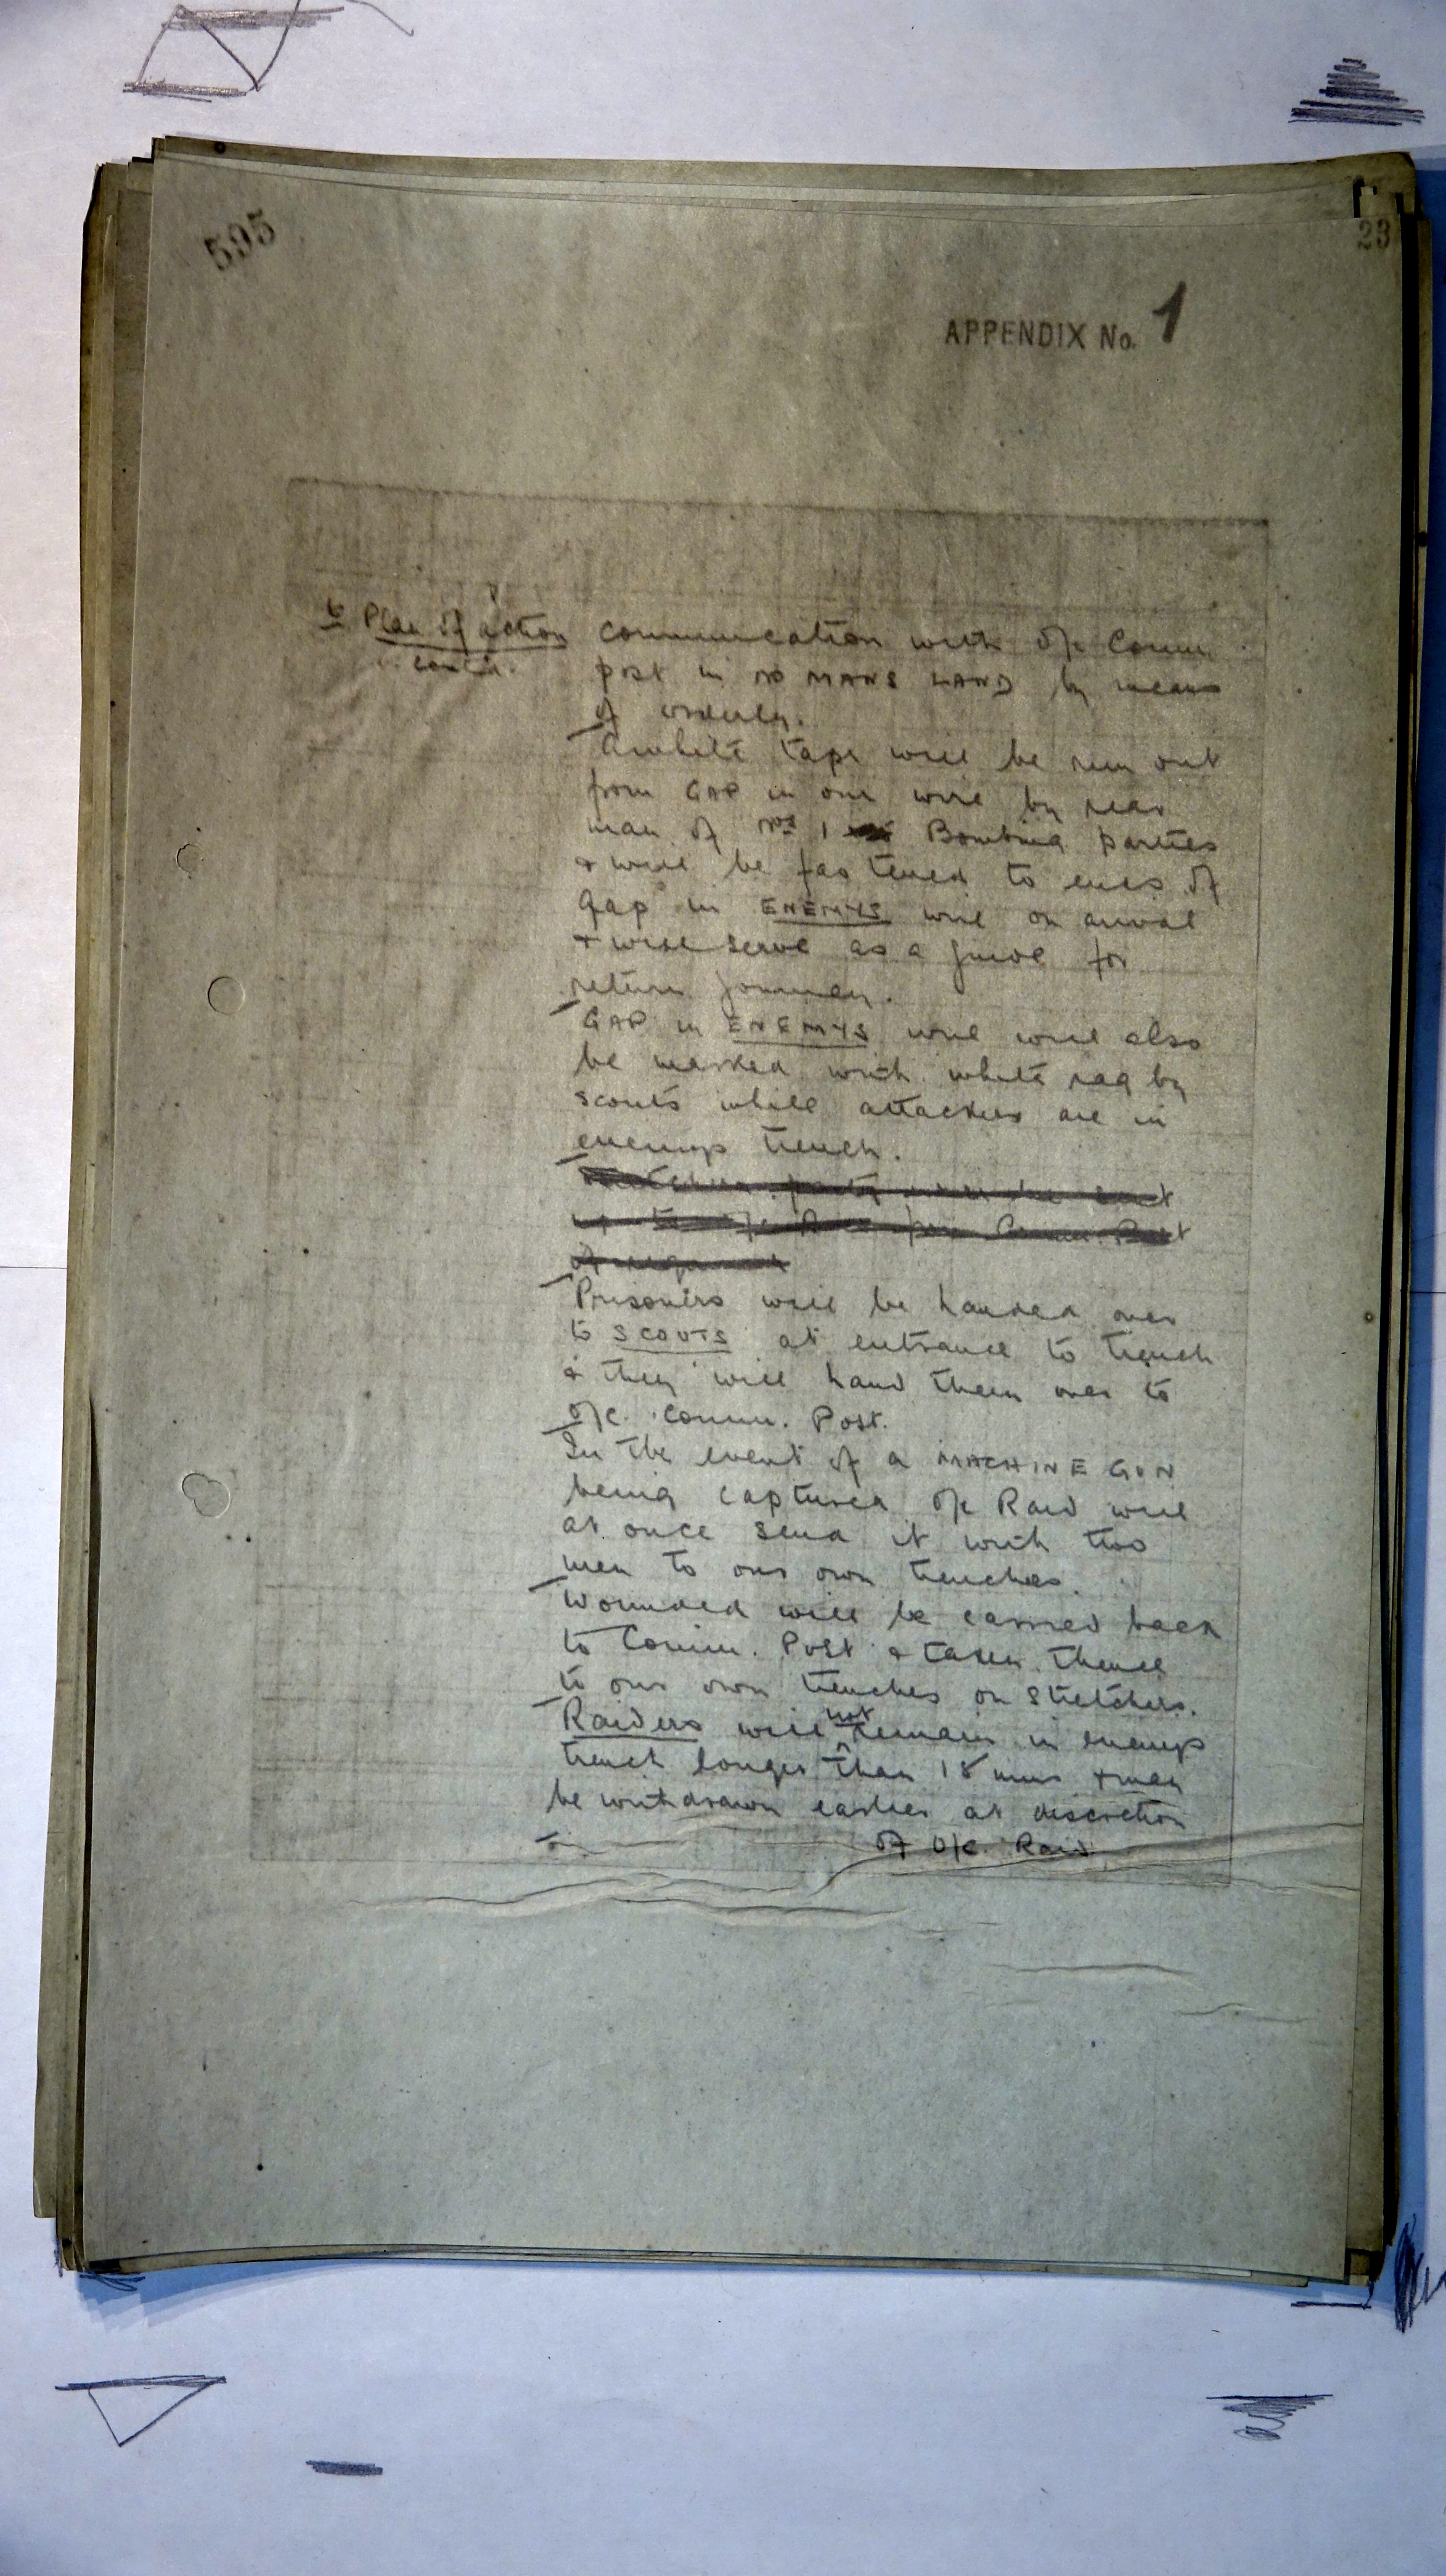 595
23
APPENDIX No. 1
6 Plan of action communication with O/c Comm.
contd. post in NO MANS LAND by means
of orderly.
A white tape will be run out
from GAP in our wire by rear
man of Nos 1 Bombing parties
+ will be fastened to ends of
Gap in ENEMYS wire on arrival
+ will serve as a guide for
return journey.
GAP in ENEMYS wire will also
be marked with white rag by
scouts while attackers are in
enemys trench.
party will be sent
Comm. Post
Prisoners will be handed over
to SCOUTS at entrance to trench
+ they will hand them over to
O/c. Comm. Post.
In the event of a MACHINE GUN
being captured O/c Raid will
at once send it with two
men to our own trenches.
Wounded will be carried back
to Comm. Post + taken thence
to our own trenches on stretchers.
Raiders will not remain in enemys
trench longer than 15 mins + may
be withdrawn earlier at discretion
of O/c. Raid